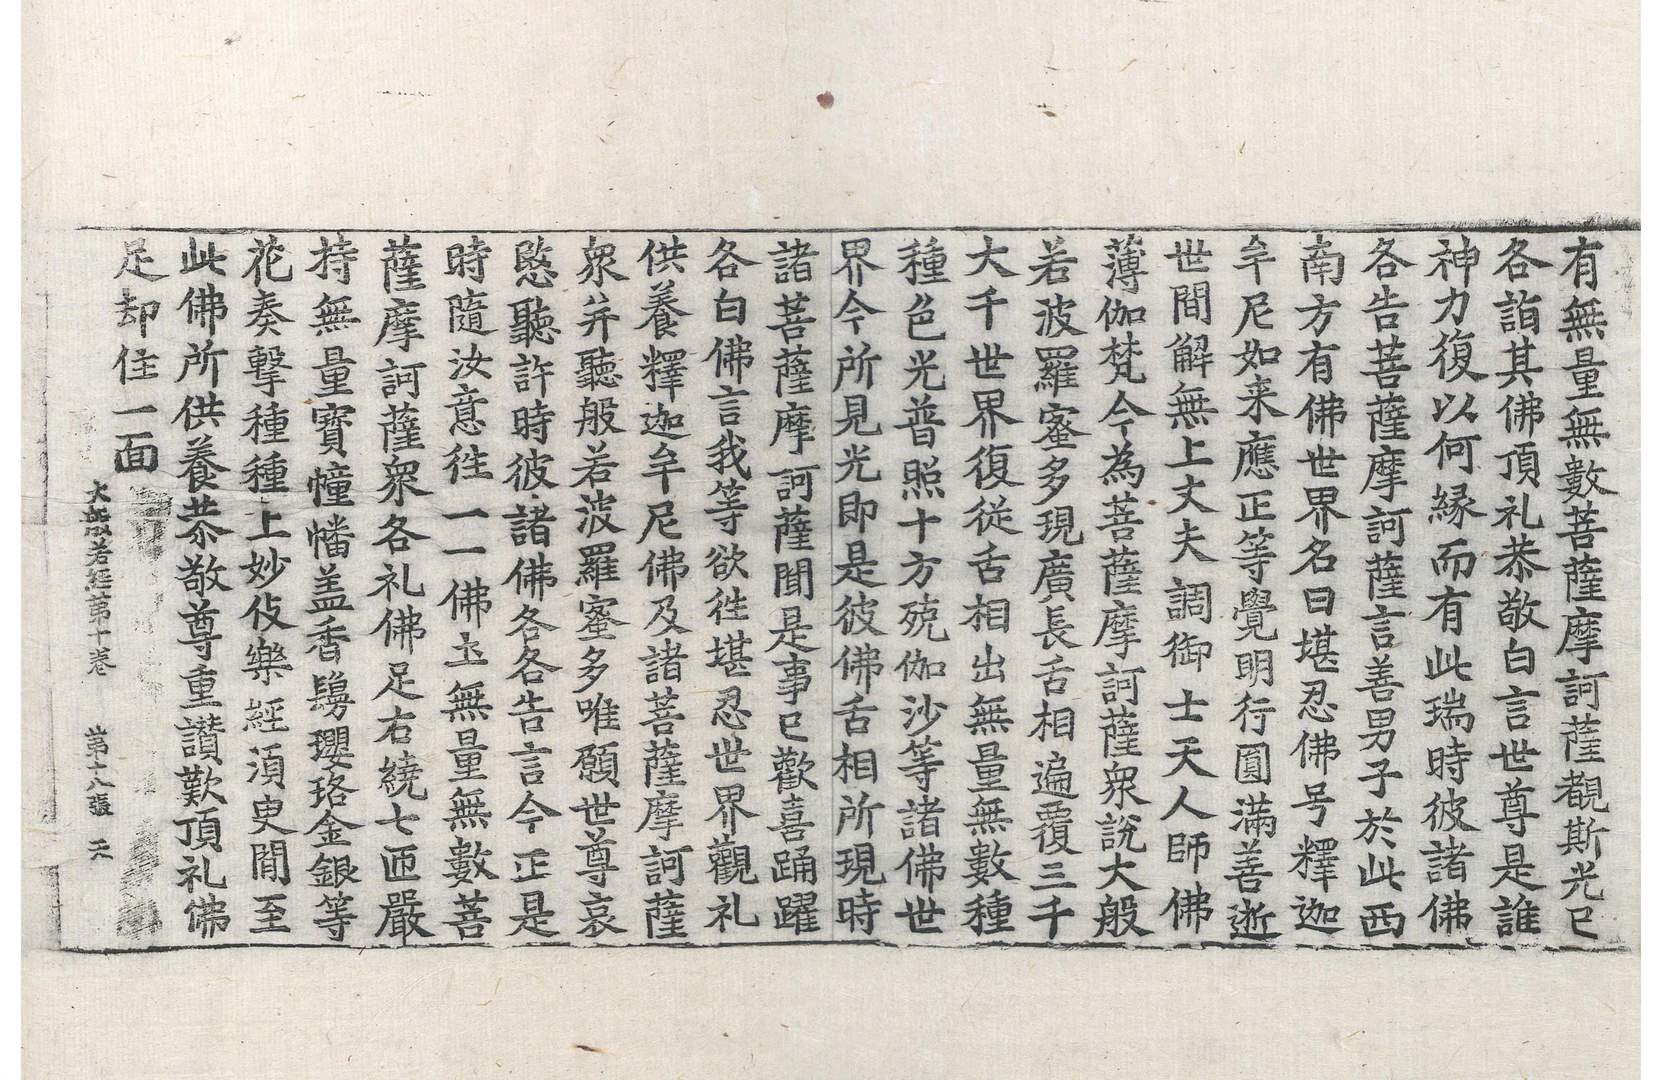 有無量無數菩薩摩訶薩覩斯光已
各詣其佛頂礼恭敬白言世尊是誰
神力復以何縁而有此瑞時彼諸佛
各告菩薩摩訶薩言善男子於此西
南方有佛世界名曰堪忍佛号釋迦
牟尼如来應正等覺明行圓滿善逝
世間解無上丈夫調御士天人師佛
薄伽梵今為菩薩摩訶薩衆說大般
若波羅蜜多現廣長舌相遍覆三千
大千世界復從舌相出無量無數種
種色光普照十方殑伽沙等諸佛世
界今所見光即是彼佛舌相所現時
諸菩薩摩訶薩聞是事已歡喜踊躍
各白佛言我等欲往堪忍世界觀礼
供養釋迦牟尼佛及諸菩薩摩訶薩
衆并聽般若波羅蜜多唯願世尊哀
愍聽許時彼諸佛各各告言今正是
時隨汝意往一一佛土無量無數菩
薩摩訶薩衆各礼佛足右繞七匝嚴
持無量寶幢幡盖香鬘瓔珞金銀等
花奏擊種種上妙伎樂經湏臾間至
此佛所供養恭敬尊重讃歎頂礼佛
足却住一面
大般若経第十卷 第十八張